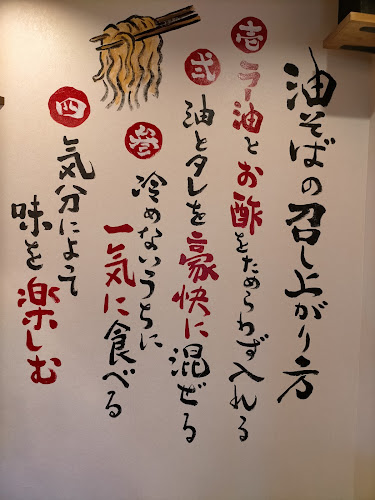 油そばの召し上がり方
壱
ラー油とお酢をためらわず入れる
弐
油とタレを豪快に混ぜる
参
冷めないうちに
一気に食べる
四
気分によって
味を楽しむ